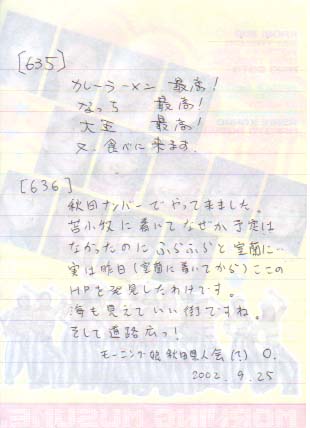 [635]
カレーラーメン 最高!
なっち 最高!
大王 最高!
又、食べに来ます.
[636]
秋田ナンバーでやって来ました。
苫小牧に着いてなぜか予定は
なかったのにふらふらと室蘭に…
実は昨日(室蘭に着いてから)ここの
HPを発見したわけです。
海も見えていい街ですね。
そして道路広っ!
モーニング娘 秋田県人会(?) O.
2002.9.25
MORNING MUSUME